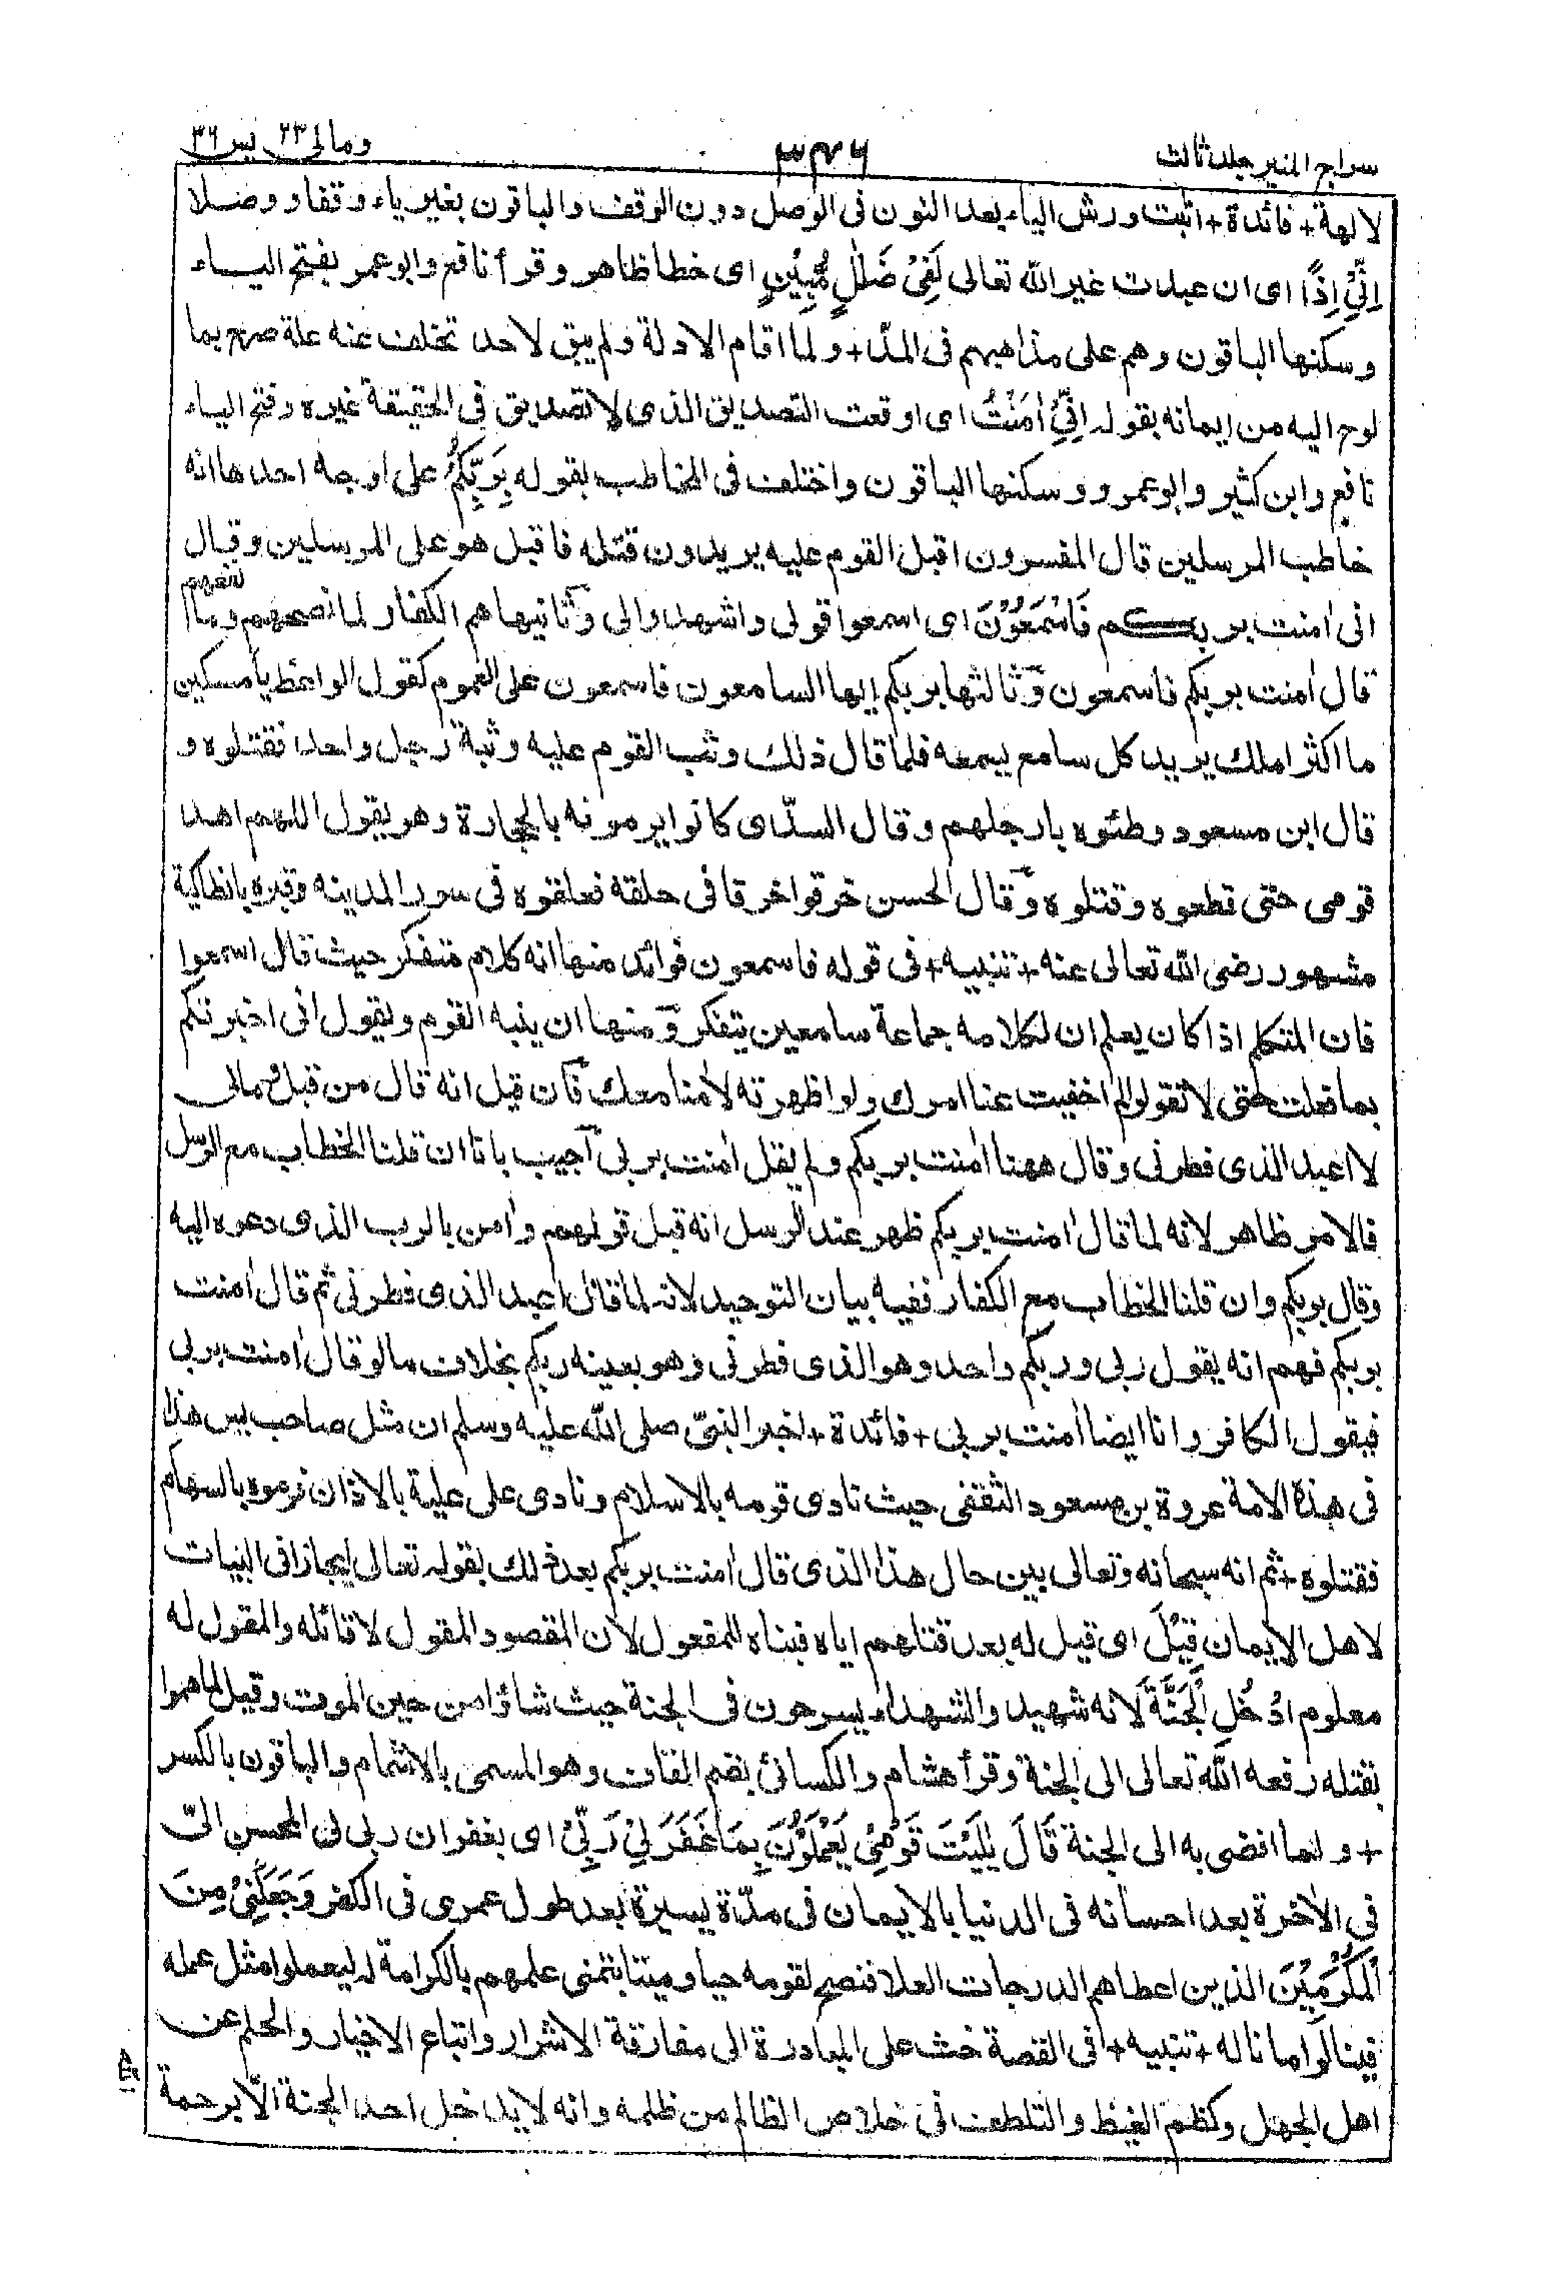 سراج المنير جلد ثالث
٣٤٦
ومالى ٢٣ يس ٣٦
لالهة + فائدة + اثبت ورش الياء بعد النون فى الوصل دون الوقف والباقون بغير ياء وقفا ووصلا
اِنِّىْٓ اِذًا اى ان عبدت غير الله تعالى لَفِىْ ضَلٰلٍ مُّبِيْنٍ اى خطا ظاهر وقرأ نافع وابو عمر بفتح الياء
وسكنها الباقون وهم على مذاهبهم فى المدّ + ولما اقام الادلة ولم يبق لاحد تخلف عنه علة صرح بما
لوح اليه من ايمانه بقوله اِنِّىْٓ اٰمَنْتُ اى اوقعت التصديق الذى لا تصديق فى الحقيقة غيره وفتح الياء
نافع وابن كثير وابو عمرو وسكنها الباقون واختلف فى المخاطب بقوله بِرَبِّكُمْ على اوجه احدها انه
خاطب المرسلين قال المفسرون اقبل القوم عليه يريدون قتله فاقبل هو على المرسلين وقال
انى اٰمنت بربكم فَاسْمَعُوْنَ اى اسمعوا قولى واشهدوا لى وثانيها هم الكفار لما نصحهم وما نفعهم
قال اٰمنت بربكم فاسمعون وثالثها بربكم ايها السامعون فاسمعون على العموم كقول الواعظ يا مسكين
ما اكثر املك يريد كل سامع يسمعه فلما قال ذلك وثب القوم عليه وثبة رجل واحد فقتلوه و
قال ابن مسعود وطئوه بارجلهم وقال السدّى كانوا يرمونه بالحجارة وهو يقول اللهم اهد
قومى حتى قطعوه وقتلوه وقال الحسن خرقوا خرقا فى حلقه فعلقوه فى سور المدينه وقبره بانطاكية
مشهور رضى الله تعالى عنه + تنبيه + فى قوله فاسمعون فوائد منها انه كلام متفكر حيث قال اسمعوا
فان المتكلم اذا كان يعلم ان لكلامه جماعة سامعين يتفكر ومنها ان ينبه القوم ويقول انى اخبرتكم
بما فعلت حتى لا تقولوا لم اخفيت عنا امرك ولو اظهرته لاٰمنا معك فان قيل انه قال من قبل ومالى
لا اعبد الذى فطرنى وقال ههنا اٰمنت بربكم ولم يقل اٰمنت بربى اجيب بانا ان قلنا الخطاب مع الرسل
فالامر ظاهر لانه لما قال اٰمنت بربكم ظهر عند الرسل انه قبل قولهم واٰمن بالرب الذى دعوه اليه
وقال بربكم وان قلنا الخطاب مع الكفار ففيه بيان التوحيد لانه لما قال اعبد الذى فطرنى ثم قال اٰمنت
بربكم فهم انه يقول ربى وربكم واحد وهو الذى فطرنى وهو بعينه ربكم بخلاف ما لو قال اٰمنت بربى
فيقول الكافر وانا ايضا اٰمنت بربى + فائدة + اخبر النبىّ صلى الله عليه وسلم ان مثل صاحب يس هذا
فى هذه الامة عروة بن مسعود الثقفى حيث نادى قومه بالاسلام ونادى على علية بالاذان فرموه بالسهام
فقتلوه + ثم انه سبحانه وتعالى بين حال هذا الذى قال اٰمنت بربكم بعد ذلك بقوله تعالى ايجازا فى البيان
لاهل الايمان قِيْلَ اى قيل له بعد قتلهم اياه فبناه للمفعول لان المقصود المقول لا قائله والمقول له
معلوم ادْخُلِ الْجَنَّةَ لانه شهيد والشهداء يسرحون فى الجنة حيث شاؤا من حين الموت وقيل لما هموا
بقتله رفعه الله تعالى الى الجنة وقرأ هشام والكسائى بضم القاف وهو المسمى بالاشمام والباقون بالكسر
+ ولما افضى به الى الجنة قَالَ يٰلَيْتَ قَوْمِىْ يَعْلَمُوْنَ بِمَا غَفَرَ لِىْ رَبِّىْ اى بغفران ربى لى المحسن الىّ
فى الاٰخرة بعد احسانه فى الدنيا بالايمان فى مدّة يسيرة بعد طول عمرى فى الكفر وَجَعَلَنِىْ مِنَ
الْمُكْرَمِيْنَ الذين اعطاهم الدرجات العلا فنصح لقومه حيا وميتا بتمنى علمهم بالكرامة له ليعملوا مثل عمله
فينالوا ما ناله + تنبيه + فى القصة حث على المبادرة الى مفارقة الاشرار واتباع الاخيار والحلم عن
اهل الجهل وكظم الغيظ والتلطف فى خلاص الظالم من ظلمه وانه لا يدخل احد الجنة الّا برحمة